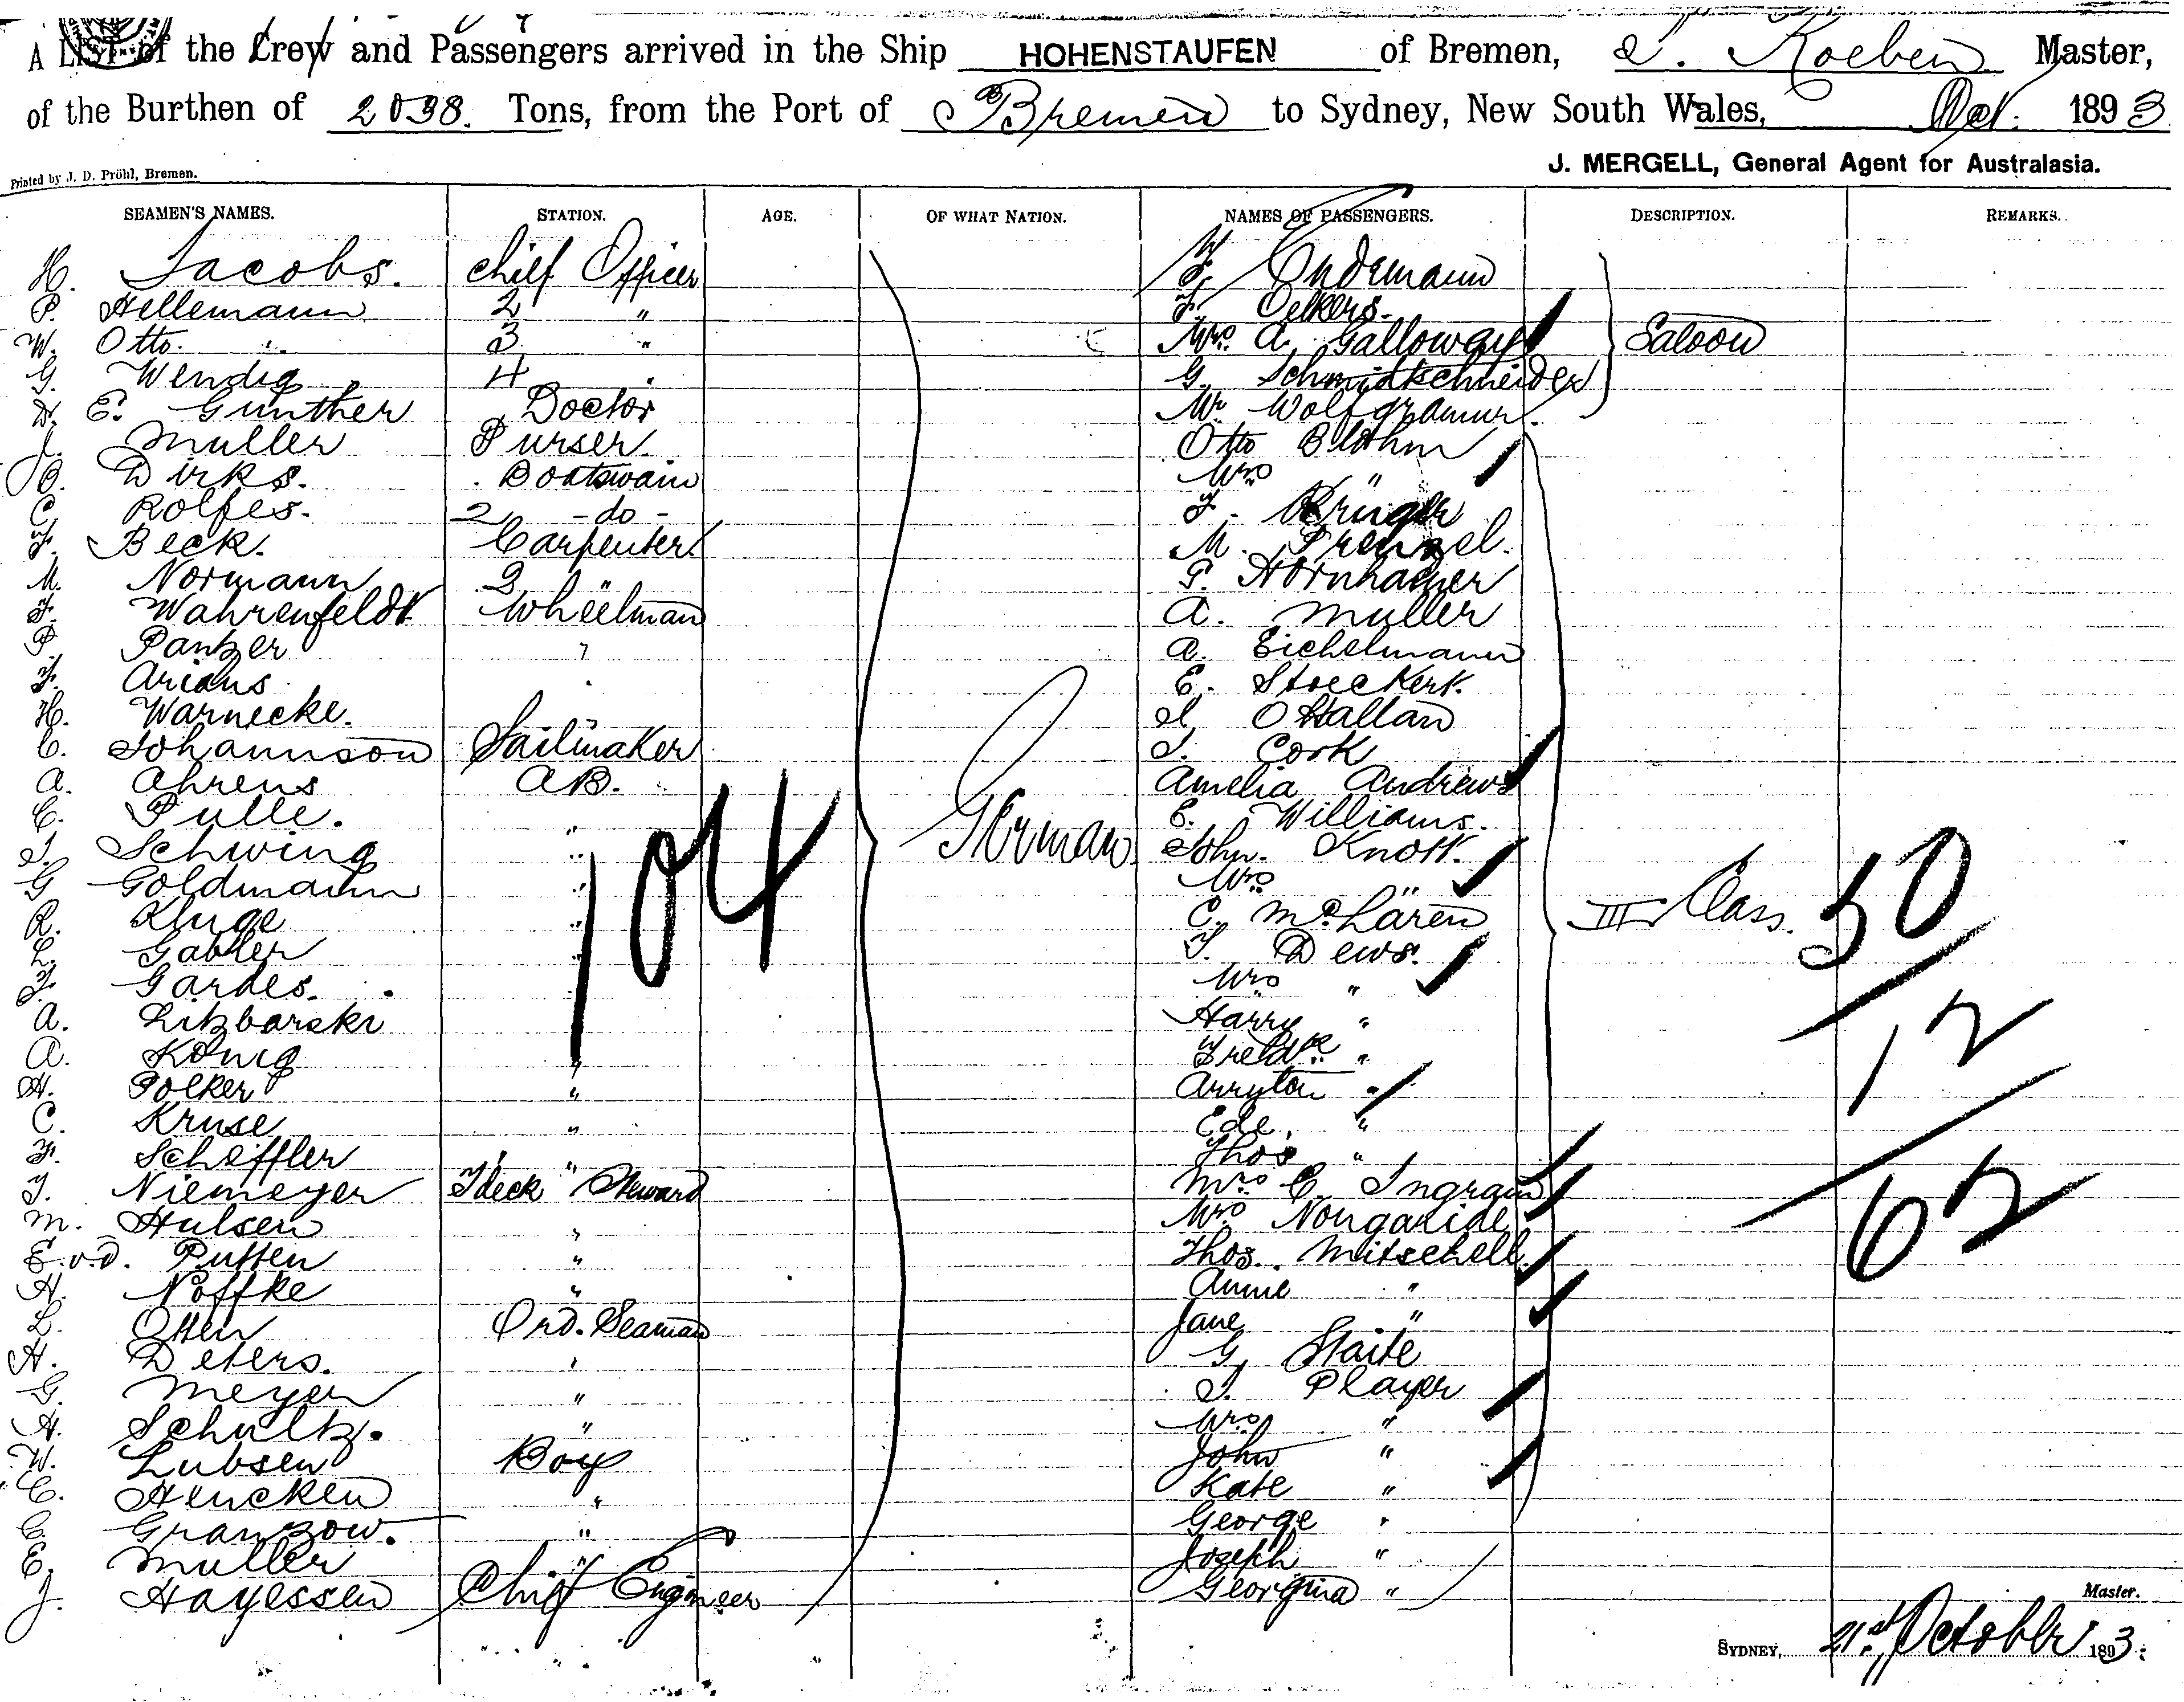 A LIST of the Crew and Passengers arrived in the Ship HOHENSTAUFEN of Bremen, Koeben Master,
of the Burthen of 2038. Tons, from the Port of Bremen to Sydney, New South Wales, Oct. 1893
J. MERGELL, General Agent for Australasia.
Printed by J. D. Pröhl, Bremen.
SEAMEN'S NAMES. STATION. AGE. OF WHAT NATION. NAMES OF PASSENGERS. DESCRIPTION. REMARKS.
H. Jacobs. Chief Officer Ondemann
P. Hellemann 2 " F. Oelkers.
W. Otto. 3 " Mrs. A. Galloway Saloon
G. Wendig 4 " G. Schmidtschneider
D. E. Gunther Doctor Mr Wolfgramm
J. Muller Purser. Otto Blohm
O. Dirks. Boatswain Mrs "
C. Rolfes. 2 - do - F. Krüger
F. Beck. Carpenter M. Prenzel.
M. Normann 2 " P. Hornhacher
F. Wahrenfeldt Wheelman A. Muller
P. Panzer " A. Eichelmann
F. Arians " E. Stoeckert.
H. Warnecke. O Hallan
C. Johannson Sailmaker J. Cork
A. Ahrens A.B. Amelia Andrews
C. Pulle. " German E. Williams.
J. Schwing " John. Knott.
G Goldmann " 104 Mrs "
R. Kluge " C. McLaren III Class. 50
L. Gabler " T. Dews.
F. Gardes. " Mrs "
A. Litzbarski Harry "
A. König " Fredk. " 12
H. Polker " Arryton "
C. Kruse " Ede. "
F. Scheffler " Thos "
J. Niemeyer Fdeck Steward Mrs C. Ingram
M. Hulsen " Mrs 62
E. v. d. Putten " Thos. Mitschell.
H. Noffke " Annie "
L. Otten Ord. Seaman Jane "
H. Deters. " G. Staite
G. Meyer " J. Player
H. Schultz. " Mrs "
W. Lubsen Boy John "
C. Hencken " Kate "
C. Granzow. " George "
E. Muller " Joseph "
J. Hayessen Chief Engineer Georgina "
Master.
SYDNEY, 21st October 1893.